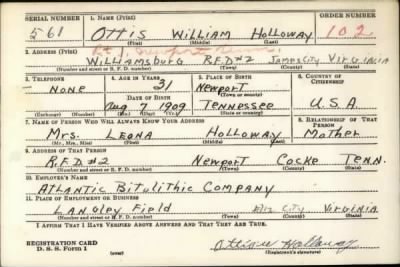 SERIAL NUMBER 1. NAME (Print) ORDER NUMBER
561 OTTIS WILLIAM HOLLOWAY 102
(First) (Middle) (Last)
2. ADDRESS (Print)
WILLIAMSBURG R.F.D #2 JAMES CITY VIRGINIA
(Number and street or R. F. D. number) (Town) (County) (State)
3. TELEPHONE 4. AGE IN YEARS 5. PLACE OF BIRTH 6. COUNTRY OF CITIZENSHIP
31 NEWPORT
NONE DATE OF BIRTH (Town or county)
AUG 7 1909 TENNESSEE U.S.A.
(Mo.) (Day) (Yr.) (State or country)
7. NAME OF PERSON WHO WILL ALWAYS KNOW YOUR ADDRESS 8. RELATIONSHIP OF THAT PERSON
MRS. LEONA HOLLOWAY MOTHER
(Mr., Mrs., Miss) (First) (Middle) (Last)
9. ADDRESS OF THAT PERSON
R.F.D #2 NEWPORT COCKE TENN.
(Number and street or R. F. D. number) (Town) (County) (State)
10. EMPLOYER'S NAME
ATLANTIC BITULITHIC COMPANY
11. PLACE OF EMPLOYMENT OR BUSINESS
LANGLEY FIELD CITY VIRGINIA
(Number and street or R. F. D. number) (Town) (County) (State)
I AFFIRM THAT I HAVE VERIFIED ABOVE ANSWERS AND THAT THEY ARE TRUE.
REGISTRATION CARD
D. S. S. Form 1 Holloway